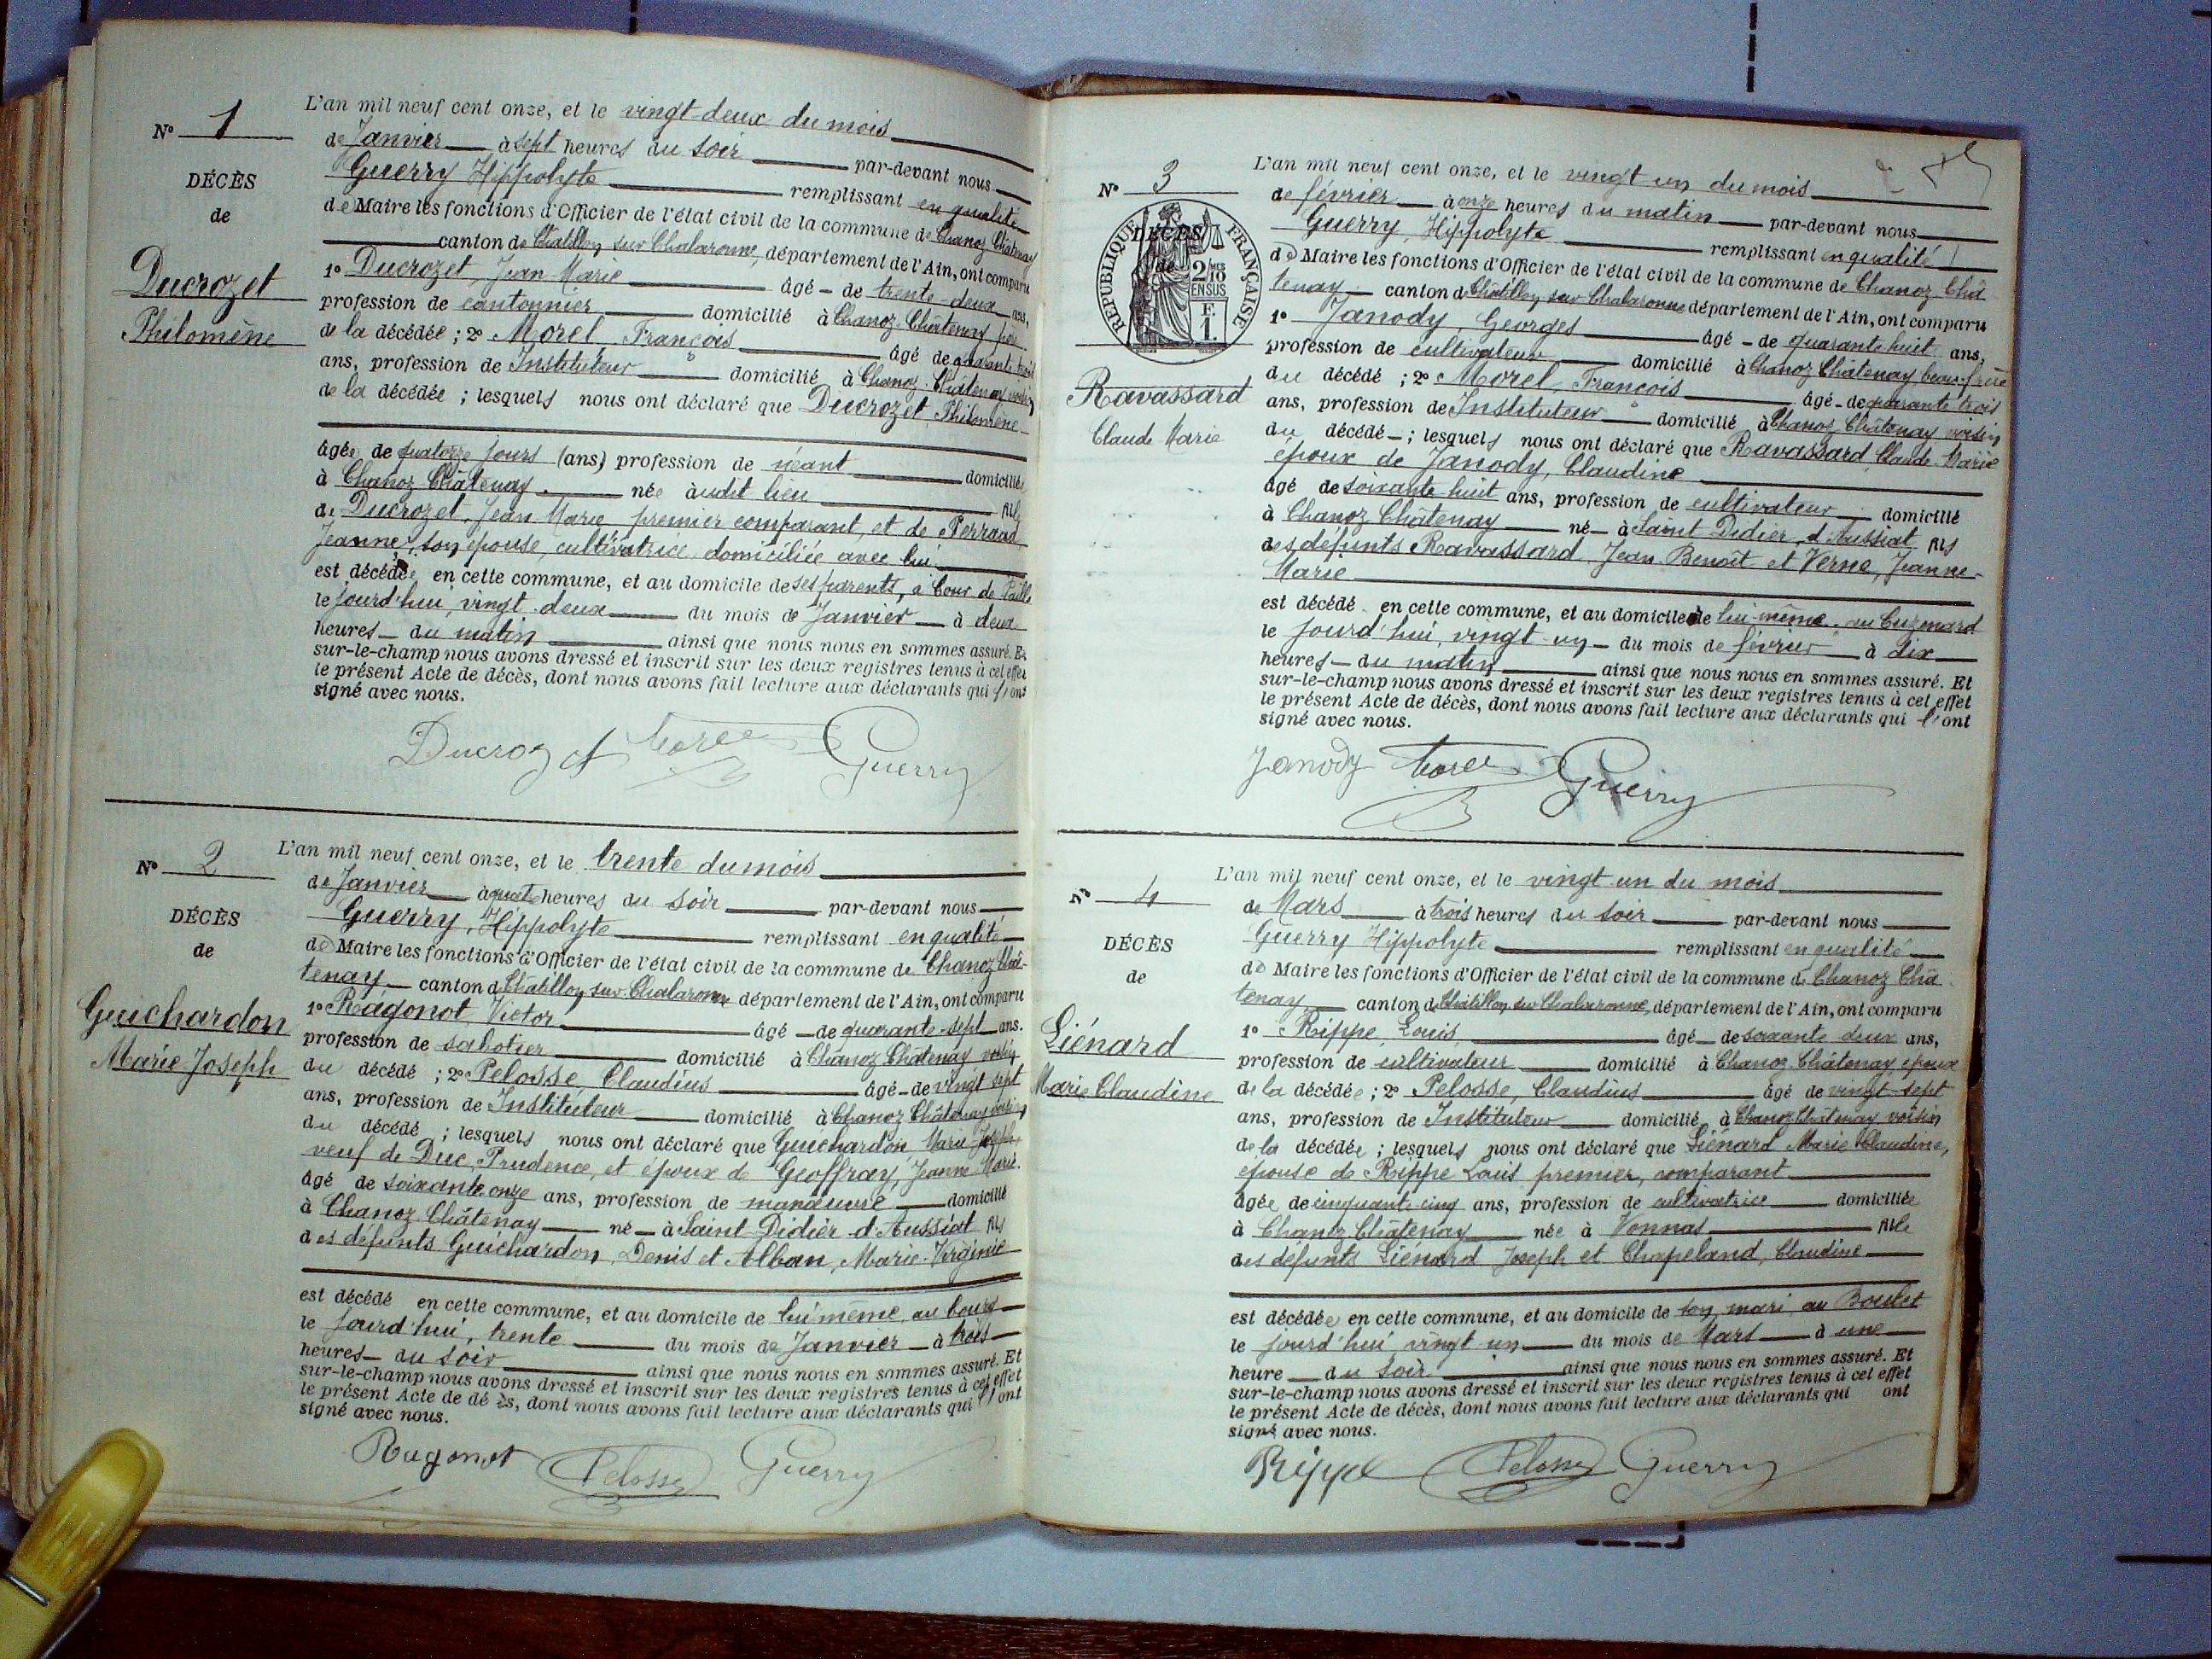 N° 1
DÉCÈS
de
Ducrozet
Philomène
L'an mil neuf cent onze, et le vingt-deux du mois
de Janvier à sept heures du soir par-devant nous
Guerry Hippolyte remplissant en qualité
de Maire les fonctions d'Officier de l'état civil de la commune de Chanoz Châtenay
canton de Châtillon sur Chalaronne, département de l'Ain, ont comparu
1° Ducrozet, Jean Marie âgé de trente-deux ans,
profession de cantonnier domicilié à Chanoz-Châtenay père
de la décédée ; 2° Morel François âgé de quarante trois
ans, profession de Instituteur domicilié à Chanoz-Châtenay voisin
de la décédée ; lesquels nous ont déclaré que Ducrozet, Philomène
âgée de quatorze jours (ans) profession de néant domiciliée
à Chanoz-Châtenay née audit lieu fille
de Ducrozet, Jean Marie premier comparant, et de Perraud
Jeanne, son épouse, cultivatrice domiciliée avec lui
est décédée en cette commune, et au domicile de ses parents, à Cour de
le jourd'hui, vingt-deux du mois de Janvier à deux
heures du matin ainsi que nous nous en sommes assuré. Et
sur-le-champ nous avons dressé et inscrit sur les deux registres tenus à cet effet
le présent Acte de décès, dont nous avons fait lecture aux déclarants qui l'ont
signé avec nous.
Ducrozet Morel Guerry
N° 2
DÉCÈS
de
Guichardon
Marie Joseph
L'an mil neuf cent onze, et le trente du mois
de Janvier à quatre heures du soir par-devant nous
Guerry, Hippolyte remplissant en qualité
de Maire les fonctions d'Officier de l'état civil de la commune de Chanoz Châ-
tenay canton de Châtillon sur Chalaronne département de l'Ain, ont comparu
1° Ragonot Victor âgé de quarante-sept ans.
profession de sabotier domicilié à Chanoz Châtenay voisin
du décédé ; 2° Pelosse, Claudius âgé de vingt sept
ans, profession de Instituteur domicilié à Chanoz Châtenay voisin
du décédé ; lesquels nous ont déclaré que Guichardon, Marie Joseph,
veuf de Duc, Prudence, et époux de Geoffray, Jeanne-Marie.
âgé de soixante onze ans, profession de manœuvre domicilié
à Chanoz Châtenay né à Saint Didier d'Aussiat fils
des défunts Guichardon, Denis et Alban, Marie-Virginie
est décédé en cette commune, et au domicile de lui même au bourg
le jourd'hui, trente du mois de Janvier à trois
heures du soir ainsi que nous nous en sommes assuré. Et
sur-le-champ nous avons dressé et inscrit sur les deux registres tenus à cet effet
le présent Acte de décès, dont nous avons fait lecture aux déclarants qui l'ont
signé avec nous.
Ragonot Pelosse Guerry
N° 3
RÉPUBLIQUE FRANÇAISE
2/10 MES EN SUS
F. 1.
DÉCÈS
de
Ravassard
Claude Marie
L'an mil neuf cent onze, et le vingt un du mois
de février à onze heures du matin par-devant nous
Guerry, Hippolyte remplissant en qualité
de Maire les fonctions d'Officier de l'état civil de la commune de Chanoz Châ
tenay canton de Châtillon sur Chalaronne département de l'Ain, ont comparu
1° Janody, Georges âgé de quarante huit ans,
profession de cultivateur domicilié à Chanoz Châtenay beau-frère
du décédé ; 2° Morel François âgé de quarante trois
ans, profession de Instituteur domicilié à Chanoz Châtenay voisin
du décédé ; lesquels nous ont déclaré que Ravassard Claude Marie
époux de Janody, Claudine
âgé de soixante huit ans, profession de cultivateur domicilié
à Chanoz Châtenay né à Saint Didier d'Aussiat fils
des défunts Ravassard Jean Benoît et Verne, Jeanne-
Marie
est décédé en cette commune, et au domicile de lui même, au Cuzenard
le jourd'hui, vingt-un du mois de février à dix
heures du matin ainsi que nous nous en sommes assuré. Et
sur-le-champ nous avons dressé et inscrit sur les deux registres tenus à cet effet
le présent Acte de décès, dont nous avons fait lecture aux déclarants qui l'ont
signé avec nous.
Janody Morel Guerry
N° 4
DÉCÈS
de
Liénard
Marie Claudine
L'an mil neuf cent onze, et le vingt un du mois
de Mars à trois heures du soir par-devant nous
Guerry Hippolyte remplissant en qualité
de Maire les fonctions d'Officier de l'état civil de la commune de Chanoz Châ
tenay canton de Châtillon sur Chalaronne, département de l'Ain, ont comparu
1° Rippe, Louis âgé de soixante deux ans,
profession de cultivateur domicilié à Chanoz Châtenay époux
de la décédée ; 2° Pelosse, Claudius âgé de vingt-sept
ans, profession de Instituteur domicilié à Chanoz Châtenay voisin
de la décédée ; lesquels nous ont déclaré que Liénard Marie Claudine,
épouse de Rippe Louis premier, comparant
âgée de cinquante cinq ans, profession de cultivatrice domiciliée
à Chanoz Châtenay née à Vonnas fille
des défunts Liénard Joseph et Chapeland, Claudine
est décédée en cette commune, et au domicile de son mari au Boulet
le jourd'hui vingt un du mois de Mars à une
heure du soir ainsi que nous nous en sommes assuré. Et
sur-le-champ nous avons dressé et inscrit sur les deux registres tenus à cet effet
le présent Acte de décès, dont nous avons fait lecture aux déclarants qui ont
signé avec nous.
Rippe Pelosse Guerry